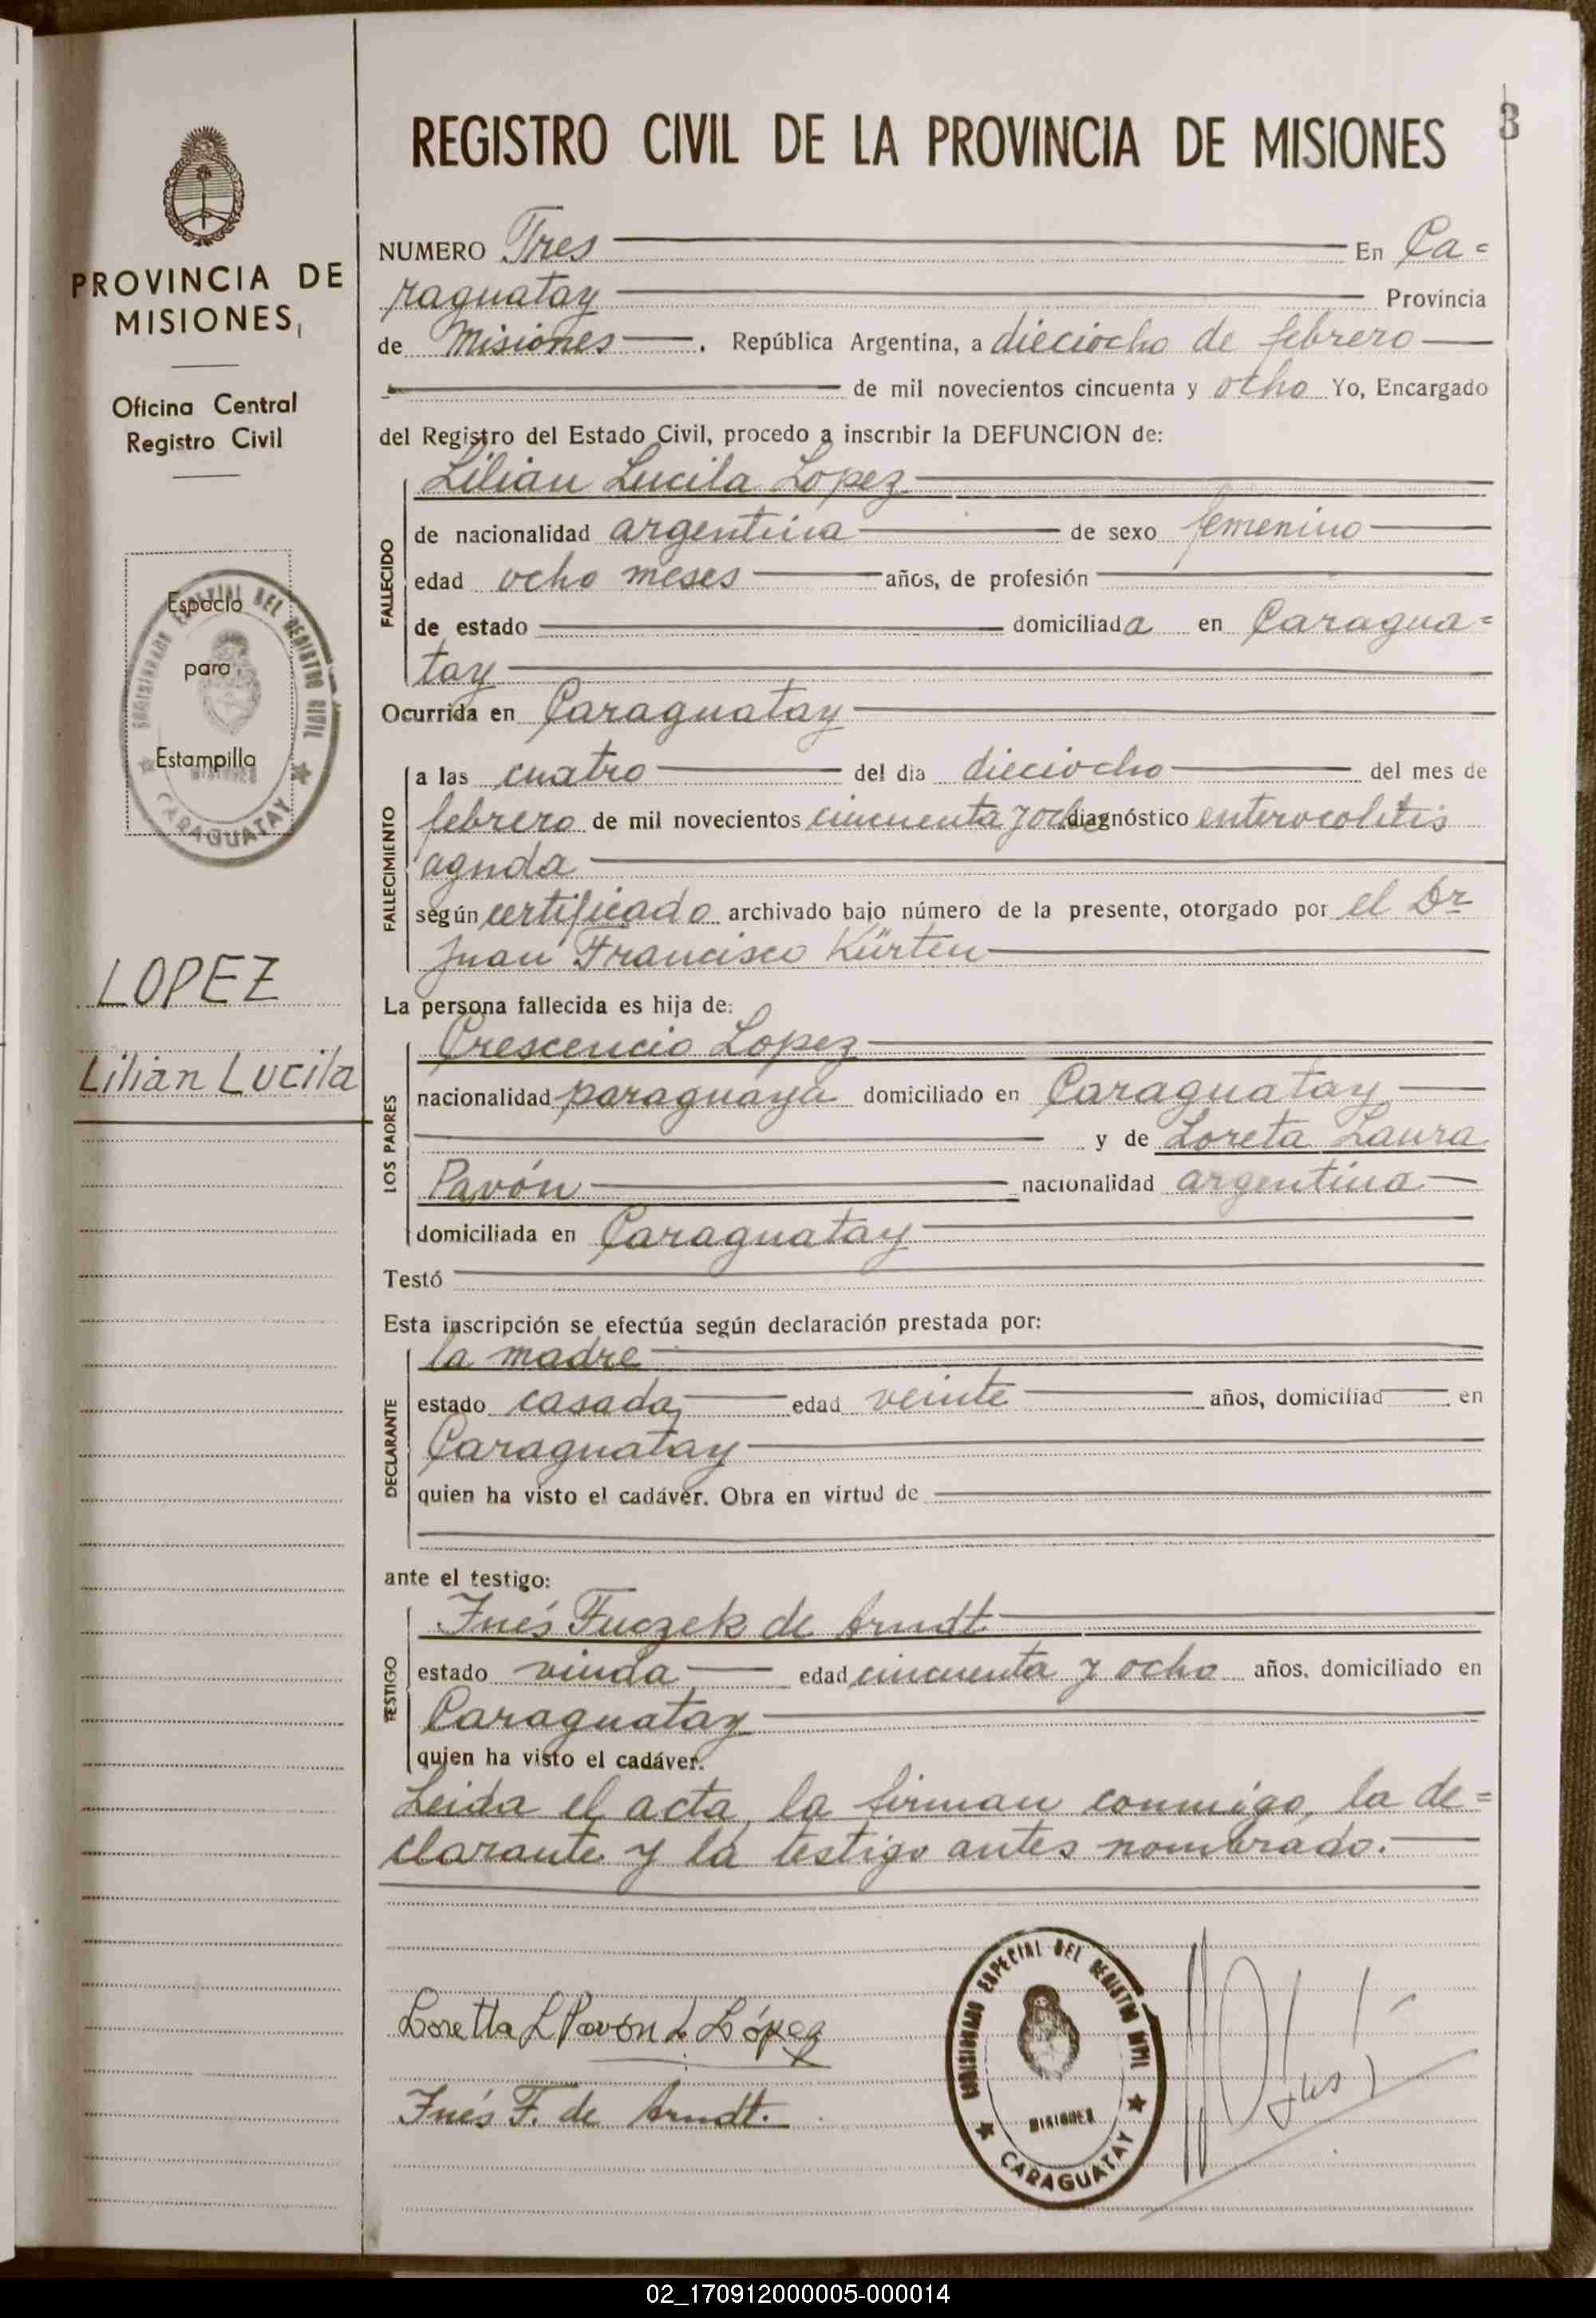 3
REGISTRO CIVIL DE LA PROVINCIA DE MISIONES
PROVINCIA DE
MISIONES
Oficina Central
Registro Civil
Espacio
para
Estampilla
COMISIONADO ESPECIAL DEL REGISTRO CIVIL
MISIONES
CARAGUATAY
LOPEZ
Lilian Lucila
NUMERO Tres En Ca=
raguatay Provincia
de Misiones. República Argentina, a dieciocho de febrero
de mil novecientos cincuenta y ocho Yo, Encargado
del Registro del Estado Civil, procedo a inscribir la DEFUNCION de:
Lilian Lucila Lopez
FALLECIDO
de nacionalidad argentina de sexo femenino
edad ocho meses años, de profesión
de estado domiciliada en Caragua=
tay
Ocurrida en Caraguatay
FALLECIMIENTO
a las cuatro del dia dieciocho del mes de
febrero de mil novecientos cincuenta y ocho diagnóstico enterocolitis
aguda
según certificado archivado bajo número de la presente, otorgado por el Dr
Juan Francisco Kürten
La persona fallecida es hija de:
LOS PADRES
Crescencio Lopez
nacionalidad paraguaya domiciliado en Caraguatay
y de Loreta Laura
Pavón nacionalidad argentina
domiciliada en Caraguatay
Testó
Esta inscripción se efectúa según declaración prestada por:
DECLARANTE
la madre
estado casada edad veinte años, domiciliad en
Caraguatay
quien ha visto el cadáver. Obra en virtud de
ante el testigo:
TESTIGO
Inés Fuczek de Arndt
estado viuda edad cincuenta y ocho años, domiciliado en
Caraguatay
quien ha visto el cadáver.
Leida el acta, la firman conmigo, la de=
clarante y la testigo antes nombrado.
Loretta L Pavón d. López
Inés F. de Arndt.
COMISIONADO ESPECIAL DEL REGISTRO CIVIL
MISIONES
CARAGUATAY
02_170912000005-000014